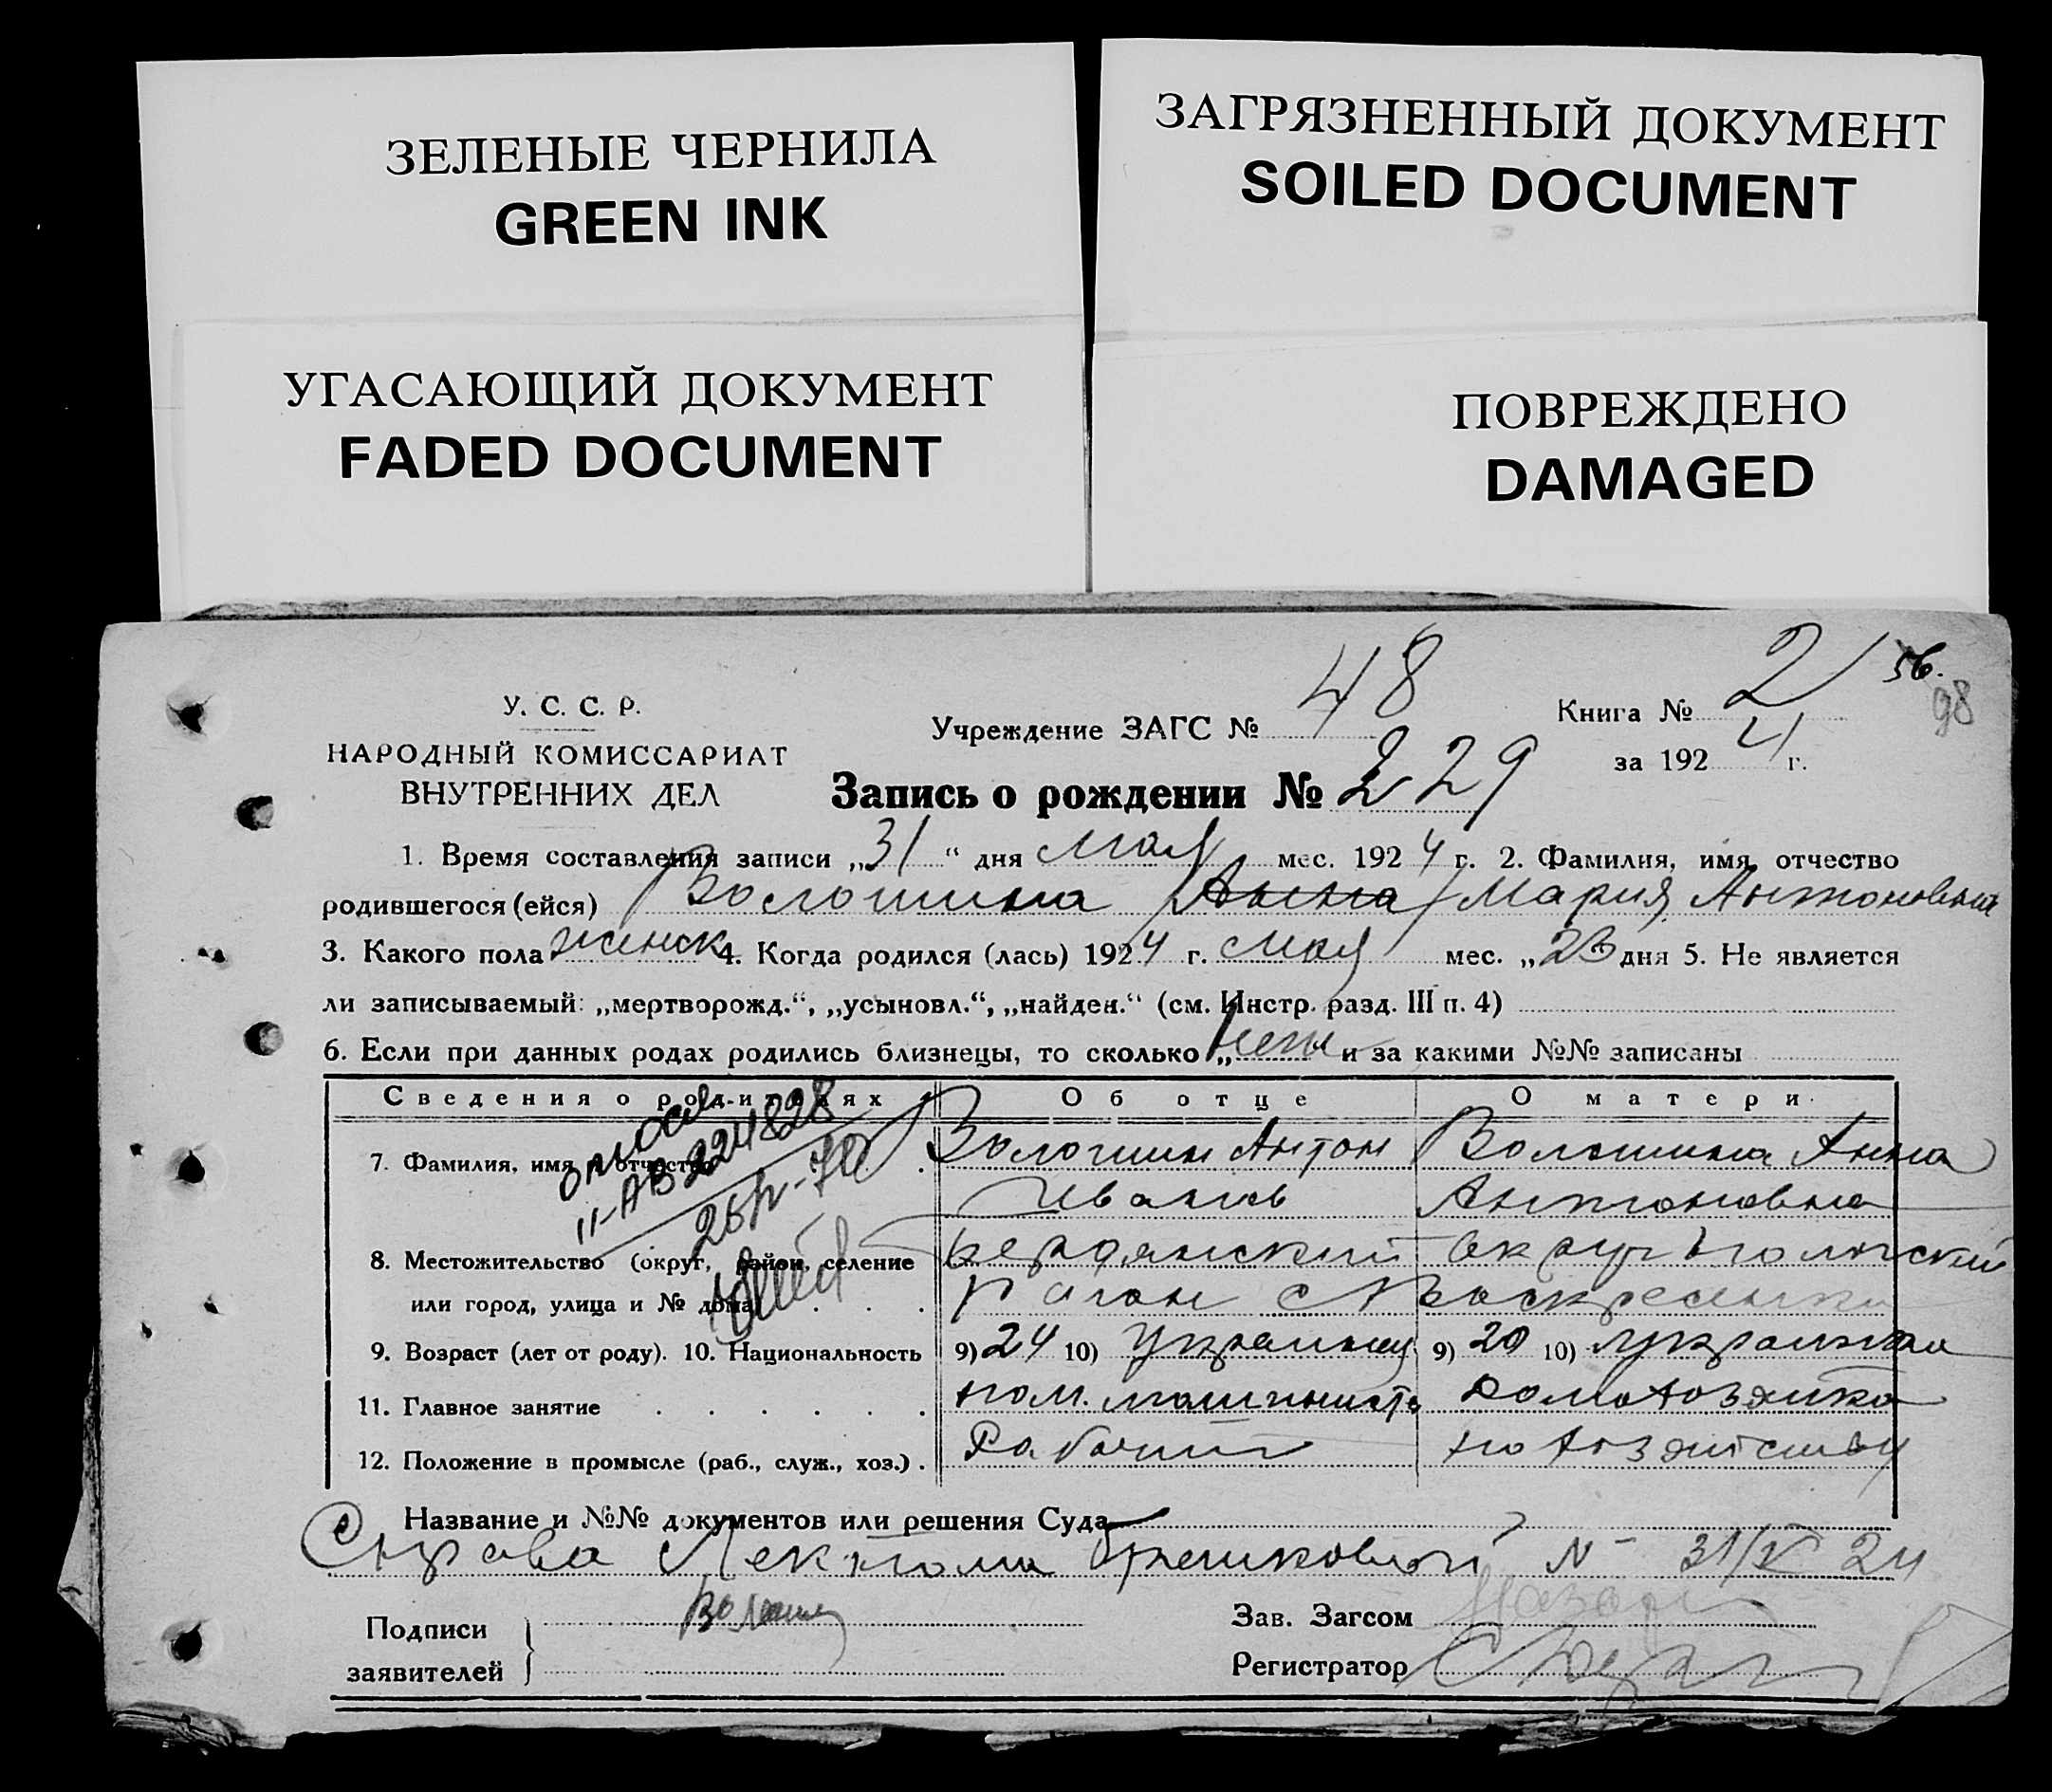 ЗЕЛЕНЫЕ ЧЕРНИЛА
GREEN INK
ЗАГРЯЗНЕННЫЙ ДОКУМЕНТ
SOILED DOCUMENT
УГАСАЮЩИЙ ДОКУМЕНТ
FADED DOCUMENT
ПОВРЕЖДЕНО
DAMAGED
56.
98
У. С. С. Р.
НАРОДНЫЙ КОМИССАРИАТ
ВНУТРЕННИХ ДЕЛ
Учреждение ЗАГС № 48
Книга № 2
за 1924 г.
Запись о рождении № 229
1. Время составления записи „31“ дня мая мес. 1924 г. 2. Фамилия, имя, отчество
родившегося (ейся) Волошина Анна Мария Антоновна
3. Какого пола женск 4. Когда родился (лась) 1924 г. мая мес. „23 дня 5. Не является
ли записываемый: „мертворожд.“, „усыновл.“, „найден.“ (см. Инстр. разд. III п. 4)
6. Если при данных родах родились близнецы, то сколько „ и за какими №№ записаны
Сведения о родителях Об отце О матери
7. Фамилия, имя и отчество Волошин Антон Волошина Анна
Иванов Антоновна
II-АВ 224828
8. Местожительство (округ, район, селение Бердянский округ Пологский
или город, улица и № дома) район с Воскресенка
9. Возраст (лет от роду). 10. Национальность 9) 24 10) Украинец 9) 20 10) украинка
11. Главное занятие пом. машиниста домохозяйка
12. Положение в промысле (раб., служ., хоз.) Рабочий по хозяйству
Название и №№ документов или решения Суда
Справа № 31/V 24
Подписи
заявителей
Зав. Загсом
Регистратор